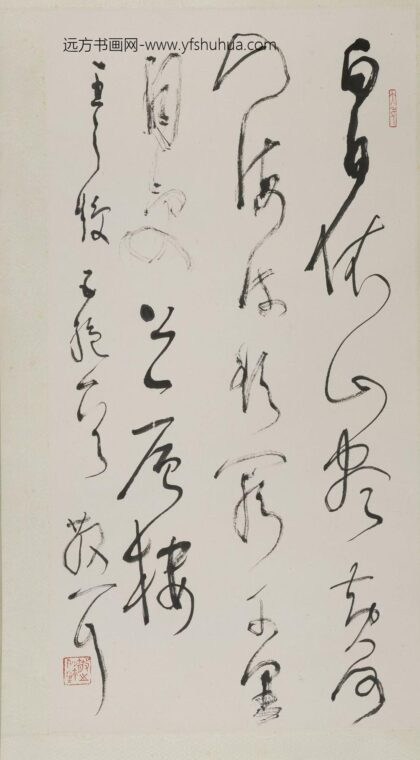 远方书画网-www.yfshuhua.com
白日依山尽黄河
入海流欲窮千里
目更上一层楼
王之涣五绝一首 散耳